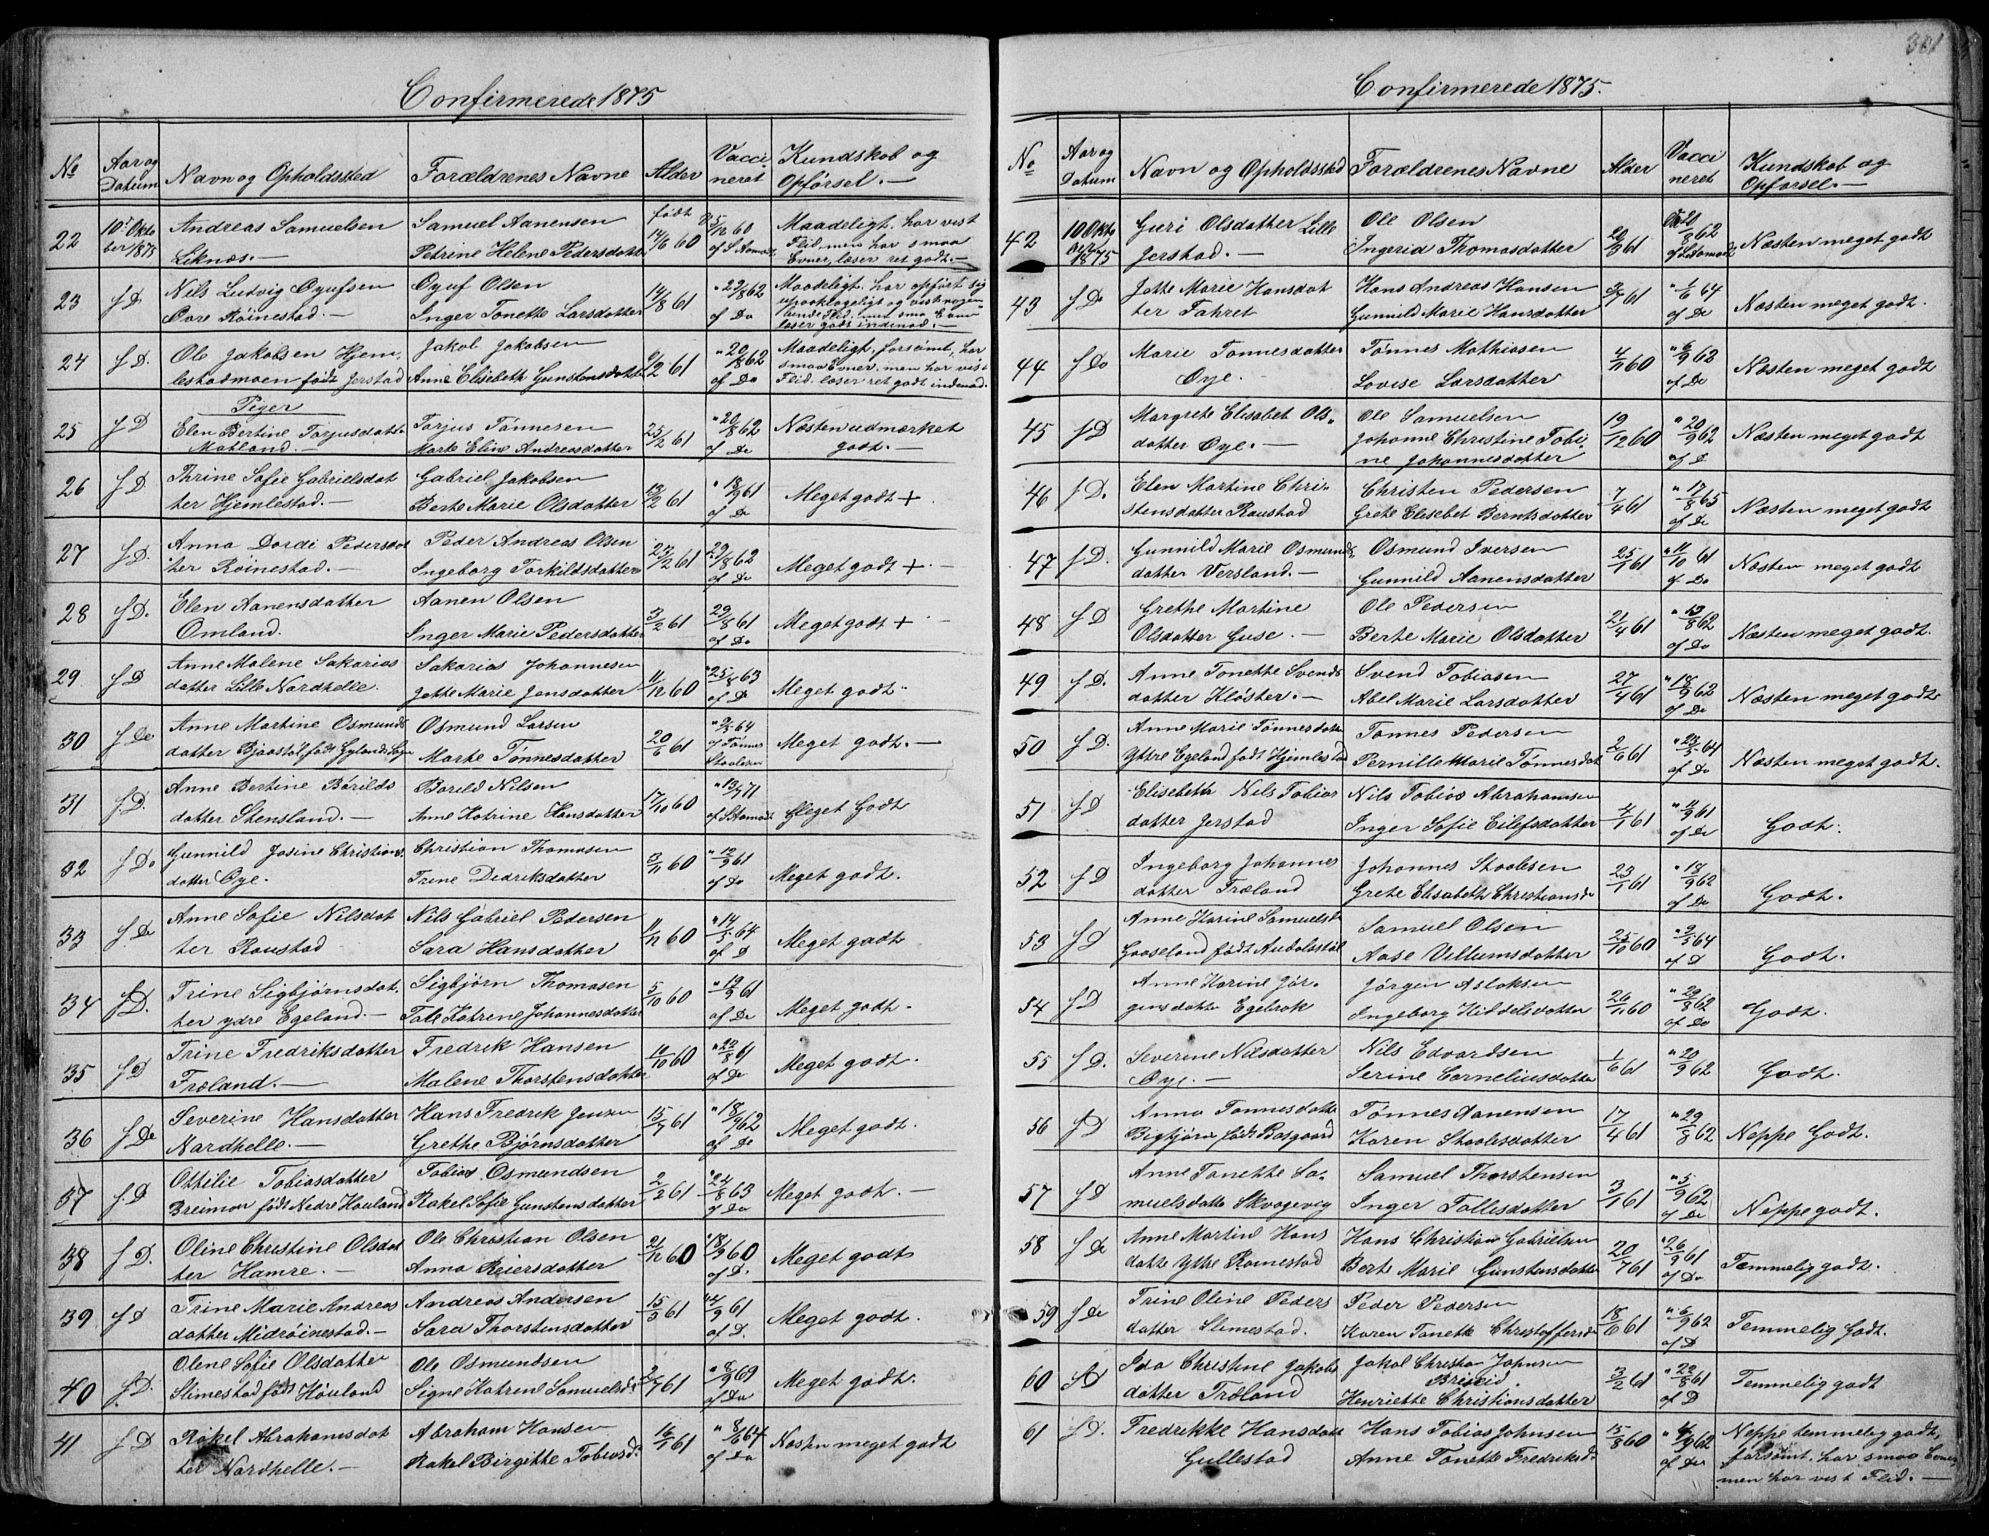 Confirmerede 1875
No
Aar og Datum
Navn og Opholdssted
Forældrenes Navne
Alder
Vaccineret
Kundskab og Opførsel.—
22 10de Oktober 1875
Andreas Samuelsen
Liknæs.—
Samuel Aanensen
Petrine Helene Pedersdatter
født 14/6 60
5/12 60
Maadeligt, har vist
Flid, men har smaa
Evner, læser ret godt.—
23 f D
Nils Ludvig Øyufsen
Øvre Röinestad.—
Øyuf Olsen
Inger Tonette Larsdatter
14/8 61
" 29/8 62
af Do
Maadeligt, har opført sig
læser godt indenad.—
24 f D.
Ole Jakobsen Hjem-
lestadmoen født Jerstad
Jakob Jakobsen
Anne Elisabeth Gunstensdatter
9/2 61
" 20/8 62
af Do
Maadeligt, forsømt, har
smaa Evner, men har vist
Flid, læser ret godt indenad.
Piger
25 f D
Elen Bertine Torjusdatter
Mabland.—
Torjus Tønnesen
Marte Eline Andreasdatter
25/2 61
" 20/8 62
af Do
Næsten udmærket
godt.—
26 f D
Thrine Sofie Gabrielsdat
ter Hjemlestad.—
Gabriel Jakobsen
Berte Marie Olsdatter
13/2 61
" 18/9 61
af Do
Meget godt +
27 f D.
Anna Dordi Pedersdat
ter Röinestad.—
Peder Andreas Olsen
Ingeborg Torkildsdatter
23/2 61
29/8 62
af Do
Meget godt +
28 f D.
Elen Aanensdatter
Omland.
Aanen Olsen
Inger Marie Pedersdatter
3/2 61
29/8 61
af Do
Meget godt +
29 f D
Anne Malene Sakarias
datter Lille Nordhelle.
Sakarias Johannesen
Jotte Marie Jensdatter
11/12 60
" 25/8 63
af D
Meget godt.
30 f Do
Anne Martine Osmunds
datter Bjaastöl født Gylands Sogn
Osmund Larsen
Marte Tønnesdatter
20/6 61
" 9/5 64
af Tønnes
Staalesen
Meget godt.—
31 f D.
Anne Bertine Börilds
datter Stensland.—
Borild Nilsen
Anne Katrine Hansdatter
17/10 60
" 13/9 71
Meget Godt
32 f Do
Gunnild Josine Christians
datter Øye.
Christian Thomasen
Trine Dedriksdatter
3/11 60
" 12/9 61
af Do
Meget godt.
33 f Do
Anne Sofie Nilsdat
ter Raustad
Nils Gabriel Pedersen
Sara Hansdatter
11/12 60
" 14/5 64
af D
Meget godt
34 f D.
Trine Sigbjørnsdat.
ter ydre Egeland.—
Sigbjørn Thomasen
Tale Katrine Johannesdatter
5/10 60
" 12/9 61
af Do
Meget godt.
35 f D
Trine Fredriksdatter
Træland.—
Fredrik Hansen
Malene Thorstensdatter
14/10 60
" 22/8 61
af Do
Meget godt.
36 f Do
Severine Hansdatter
Nordhelle.—
Hans Fredrik Jensen
Grethe Bjørnsdatter
15/7 61
" 18/9 62
af Do
Meget godt.
37 f. D
Ottilie Tobiasdatter
Breimon født Nedre Houland
Tobias Osmundsen
Rakel Sofie Gunstensdatter
2/2 61
" 24/8 63
af Do
Meget godt.—
38 f D.
Oline Christine Olsdat
ter Hamre.—
Ole Christian Olsen
Anna Reiersdatter
21/12 60
" 18/9 60
af D.
Meget godt
39 f D
Trine Marie Andreas
datter Midröinestad.—
Andreas Andersen
Sara Thorstensdatter
15/5 61
4/9 61
af D.
Meget godt.
40 f. D.
Olene Sofie Olsdatter
Slimestad født Houland
Ole Osmundsen
Signe Katrine Samuelsd.
2/7 61
" 8/9 69
af Do
Meget godt.
41 f D
Rakel Abrahamsdat
ter Nordhelle.—
Abraham Hansen
Rakel Birgitte Tobiasd.
16/1 61
" 8/6 64
af Do
Næsten meget godt
301
Confirmerede 1875.
No
Aar og Datum
Navn og Opholdssted
Forældrenes Navne
Alder
Vaccineret
Kundskab og Opførsel.—
42 10 Oktober 1875
Guri Olsdatter Lille
Jerstad.—
Ole Olsen
Ingerid Thomasdatter
29/3 61
21/8 62
Næsten meget godt
43 f Do
Jotte Marie Hansdat
ter Fahret
Hans Andreas Hansen
Gunnild Marie Hansdatter
9/7 61
" 1/6 64
af Do
Næsten meget godt.
44 f Do
Marie Tonnesdatter
Øye.—
Tønnes Mathiasen
Lovise Larsdatter
4/11 60
" 6/9 62
af Do
Næsten meget godt
45 f D
Margrete Elisabet Ols-
datter Øye.—
Ole Samuelsen
Johanne Christine Tobi-
ne Johannesdatter
19/12 60
" 20/9 62
af D
Næsten meget godt
46 f D.
Elen Martine Chri-
stensdatter Raustad
Christen Pedersen
Grete Elisebet Berntsdatter
7/4 61
" 17/8 65
af Do
Næsten meget godt
47 f D.
Gunnild Marie Osmunds
datter Versland.—
Osmund Iversen
Gunnild Aanensdatter
25/1 61
" 11/10 61
af Do
Næsten meget godt
48 f D
Grethe Martine
Olsdatter Guse.—
Ole Pedersen
Berte Marie Olsdatter
21/4 61
" 13/8 62
af Do
Næsten meget godt.
49 f D.
Anne Tonette Svends
datter Kløster.—
Svend Tobiasen
Abel Marie Larsdatter
27/4 61
" 18/9 62
af Do
Næsten meget godt
50 f D.
Anne Marie Tønnesdatter
Yttre Egeland født Hjemlestad
Tonnes Pedersen
Pernille Marie Tønnesdat
2/6 61
" 23/5 64
af Do
Næsten meget godt.
51 f D
Elisebeth Nils Tobias
datter Jerstad
Nils Tobias Abrahamsen
Inger Sofie Eilefsdatter
4/1 61
" 11/9 61
af Do
Godt.
52 f D
Ingeborg Johannes
datter Træland
Johannes Staalesen
Grete Elisabeth Christiansd.
23/1 61
" 18/9 62
af Do
Godt.
53 f D
Anne Karine Samuelsd.
Gaaseland født Aubolestöl
Samuel Olsen
Aase Villumsdatter
25/10 60
" 9/5 64
af D
Godt.
54 f D
Anne Karine Jør-
gensdatter Egebrok
Jørgen Aslaksen
Ingeborg Kiddelsdatter
26/11 60
" 29/8 62
af Do
Godt.
55 f D.
Severine Nilsdatter
Øye.—
Nils Edvardsen
Serine Corneliusdatter
1/6 61
" 20/9 62
Godt.
56 f D
Anna Tønnesdatter
Bigtjørn født Basgaard
Tønnes Aanensen
Karen Staalesdatter
17/4 61
" 29/8 62
Neppe Godt.
57 f D
Anne Tonette Sa-
muelsdatter Skvagevig
Samuel Thorstensen
Inger Tollesdatter
3/1 61
" 5/9 62
af Do
Neppe godt.
58 f Do
Anne Martine Hans
datter Yttre Roinestad
Hans Christian Gabrielsen
Berte Marie Gunstensdatter
20/7 61
" 26/9 61
af Do
Temmelig godt.
59 f Do
Trine Oline Peders
datter Slimestad.
Peder Pedersen
Karen Tonette Christoffersd
18/6 61
" 6/9 62
af D
Temmelig Godt.
60 f D
Ida Christine Jakobs
datter Træland
Jakob Christian Johnsen
Briseid.
Henriette Christiansdatter
3/2 61
" 22/8 61
af D
Temmelig godt
61 f D.
Fredrikke Hansdatter
Gullestad
Hans Tobias Johnsen
Anne Tonette Fredriksd.
15/8 60
" 6/9 62
af Do
Neppe temmelig godt,
forsømt, har smaa Evner,
men har vist Flid.—